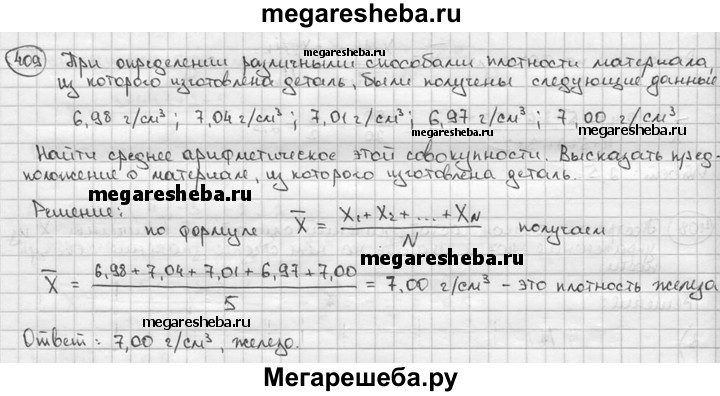 megaresheba.ru
409 При определении различными способами плотности материала,
из которого изготовлена деталь, были получены следующие данные
6,98 г/см³; 7,04 г/см³; 7,01 г/см³; 6,97 г/см³; 7,00 г/см³.
megaresheba.ru
megaresheba.ru
Найти среднее арифметическое этой совокупности. Высказать пред-
положение о материале, из которого изготовлена деталь.
megaresheba.ru
Решение:
по формуле X̄ = (X₁ + X₂ + ... + X_N)/N получаем
megaresheba.ru
X̄ = (6,98 + 7,04 + 7,01 + 6,97 + 7,00)/5 = 7,00 г/см³ - это плотность железа
megaresheba.ru
Ответ: 7,00 г/см³, железо.
Мегарешеба.ру